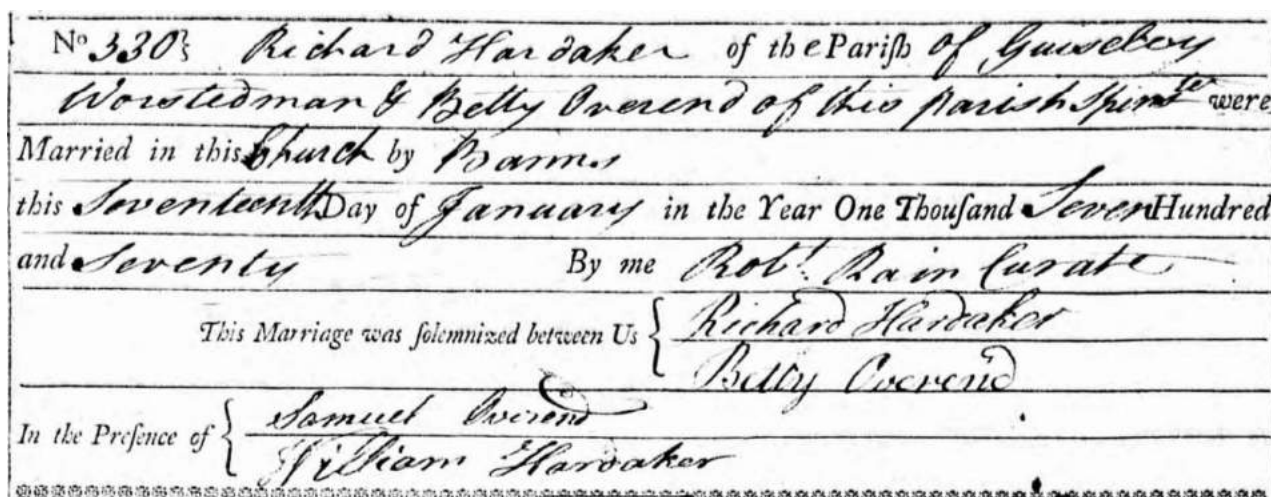 No 330} Richard Hardaker of the Pariſh of Guiseley
Worstedman & Betty Overend of this Parish Spinstr were
Married in this Church by Banns
this Seventeenth Day of January in the Year One Thouſand Seven Hundred
and Seventy By me Robt. Rain Curate
This Marriage was ſolemnized between Us { Richard Hardaker
Betty Overend
In the Preſence of { Samuel Overend
William Hardaker